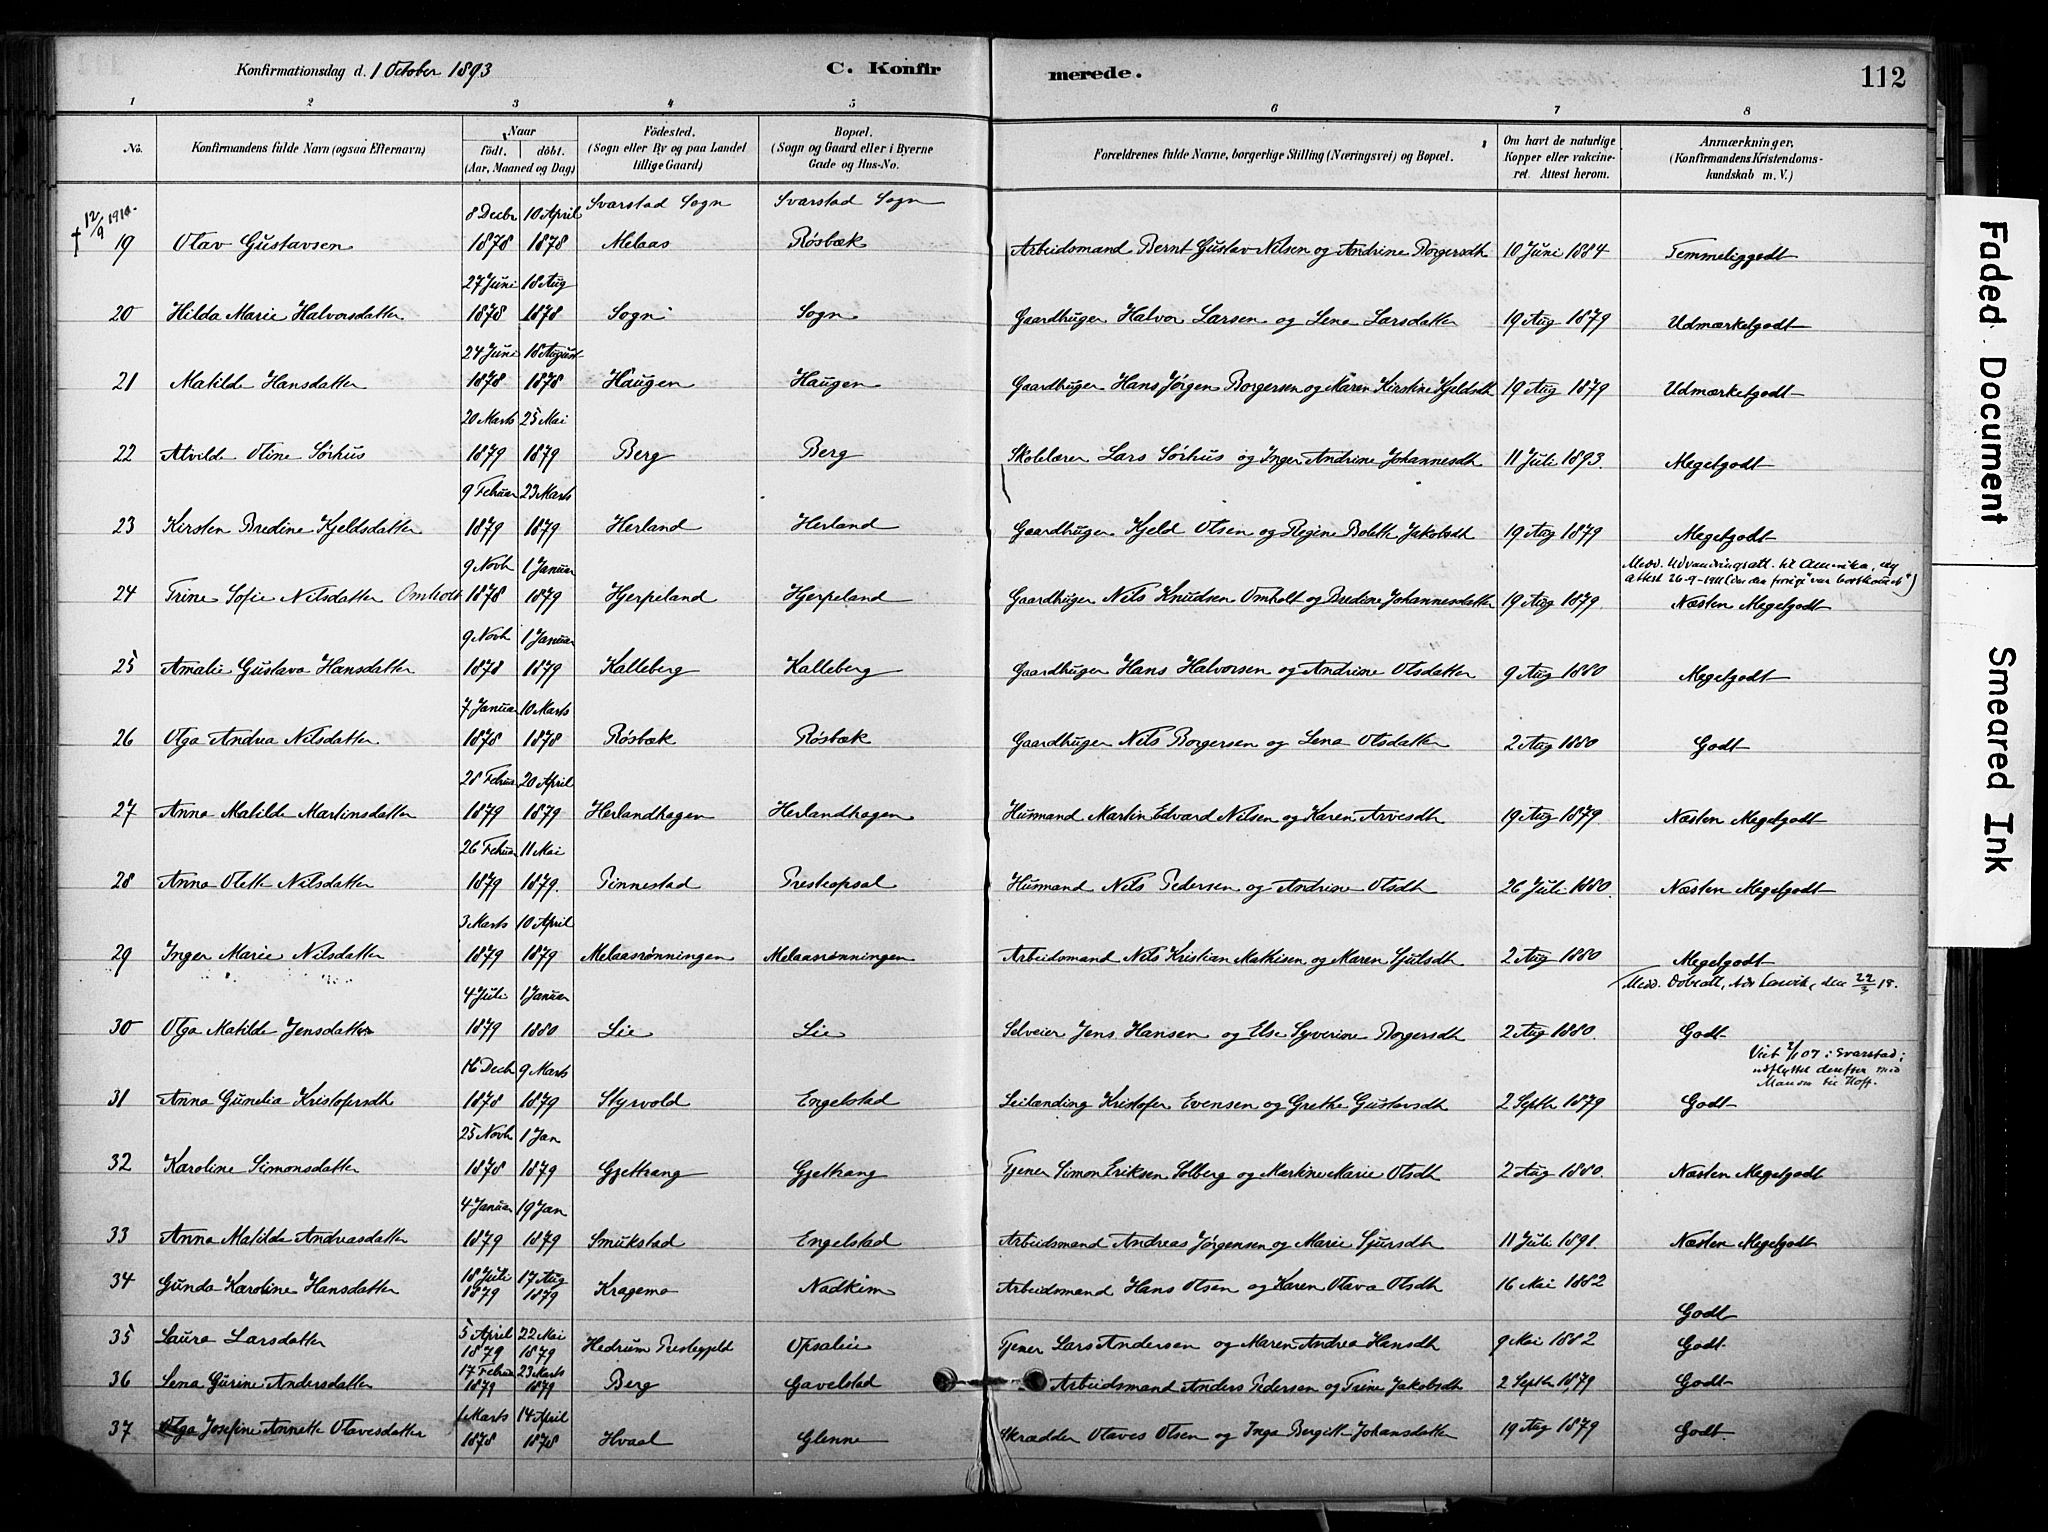 Konfirmationsdag d. 1 October 1893 C. Konfirmerede. 112
1 2 3 4 5 6 7 8
No. Konfirmandens fulde Navn (ogsaa Efternavn) Naar födt. döbt. (Aar, Maaned og Dag) Födested. (Sogn eller By og paa Landet tillige Gaard) Bopæl. (Sogn og Gaard eller i Byerne Gade og Hus-No. Forældrenes fulde Navne, borgerlige Stilling (Næringsvei) og Bopæl. Om havt de naturlige Kopper eller vakcineret. Attest herom. Anmærkninger. (Konfirmandens Kristendomskundskab m. V.)
† 12/9 1914.
8 Decbr 10 April Svarstad Sogn Svarstad Sogn
19 Olav Gustavsen 1878 1878 Melaas Røsbæk Arbeidsmand Bernt Gustav Nilsen og Andrine Borgersdh 10 Juni 1884 Temmeliggodt
27 Juni 18 Aug
20 Hilda Marie Halvorsdatter 1878 1878 Sogn Sogn Gaardbruger Halvor Larsen og Lena Larsdatter 19 Aug 1879 Udmærketgodt
24 Juni 18 August
21 Matilde Hansdatter 1878 1878 Haugen Haugen Gaardbruger Hans Jørgen Borgersen og Maren Kirstine Kjeldsdh 19 Aug 1879 Udmærketgodt
20 Marts 25 Mai
22 Alvilde Oline Sørhus 1879 1879 Berg Berg Skolelærer Lars Sørhus og Inger Andrine Johannesdh 11 Juli 1893. Megetgodt
9 Februar 23 Marts
23 Kirsten Bredine Kjeldsdatter 1879 1879 Herland Herland Gaardbruger Kjeld Olsen og Regine Boleth Jakobsdh 19 Aug 1879 Megetgodt
9 Novb 1 Januar Medd. Udvandringsatt. til Amerika, ny
attest 26-9-1911 (da den forrige "var bortkommet")
24 Trine Sofie Nilsdatter Omholt 1878 1879 Hjerpeland Hjerpeland Gaardbruger Nils Knudsen Omholt og Bredine Johannesdatter 19 Aug 1879. Næsten Megetgodt
9 Novb 1 Januar
25 Amalie Gustava Hansdatter 1878 1879 Kalleberg Kalleberg Gaardbruger Hans Halvorsen og Andrine Olsdatter 9 Aug 1880 Megetgodt
7 Januar 10 Marts
26 Olga Andrea Nilsdatter. 1878 1878 Røsbæk Røsbæk Gaardbruger Nils Borgersen og Lena Olsdatter 2 Aug 1880 Godt
28 Februar 20 April
27 Anna Matilde Martinsdatter 1879 1879 Herlandhagen Herlandhagen Husmand Martin Edvard Nilsen og Karen Arvesdh 19 Aug 1879. Næsten Megetgodt
26 Februar 11 Mai
28 Anna Oleth Nilsdatter 1879 1879. Tinnestad Prestopsal Husmand Nils Pedersen og Andrine Olsdh 26 Juli 1880. Næsten Megetgodt
3 Marts 10 April
29 Inger Marie Nilsdatter 1879 1879 Melaasrønningen Melaasrønningen Arbeidsmand Nils Kristian Mathisen og Maren Sjulsdh 2 Aug 1880 Megetgodt
4 Juli 1 Januar Medd. Dobeatt, Larvik, den 22/3 18.
30 Olga Matilde Jensdatter 1879 1880 Lie Lie Selveier Jens Hansen og Else Syverine Borgersdh 2 Aug 1880. Godt
16 Decb 9 Marts 07 i Svarstad;
udflyttet derefter med
Manden til Hoff.
31 Anna Gunelia Kristofersdh 1878 1879 Styrvold Engelstad Leilænding Kristofer Evensen og Grethe Gustavsdh 2 Septb 1879 Godt
25 Novb 1 Jan
32 Karoline Simonsdatter 1878 1879 Gjettrang Gjettrang Tjener Simon Eriksen Solberg og Martine Marie Olsdh 2 Aug 1880. Næsten Megetgodt
4 Januar 19 Jan
33 Anna Matilde Andreasdatter 1879 1879 Smukstad Engelstad Arbeidsmand Andreas Jørgensen og Marie Sjursdh 11 Juli 1891. Næsten Megetgodt
18 Juli 17 Aug
34 Gunda Karoline Hansdatter 1879 1879 Kragemo Nadkim Arbeidsmand Hans Olsen og Karen Olava Olsdh 16 Mai 1882 Godt
5 April 22 Mai
35 Laura Larsdatter 1879 1879 Hedrum Prestegjeld Opsalie Tjener Lars Andersen og Maren Andrea Hansdh 9 Mai 1882 Godt
17 Februar 23 Marts
36 Lena Gurine Andersdatter 1879 1879 Berg Gavelstad Arbeidsmand Anders Pedersen og Trine Jakobsdh 2 Septb 1879 Godt
1 Marts 14 April
37 Olga Josefine Annette Olavesdatter 1878 1878 Hvaal Glenne Skrædder Olaves Olsen og Inga Bergitt Johansdatter 19 Aug 1879 Godt.
Faded Document
Smeared Ink